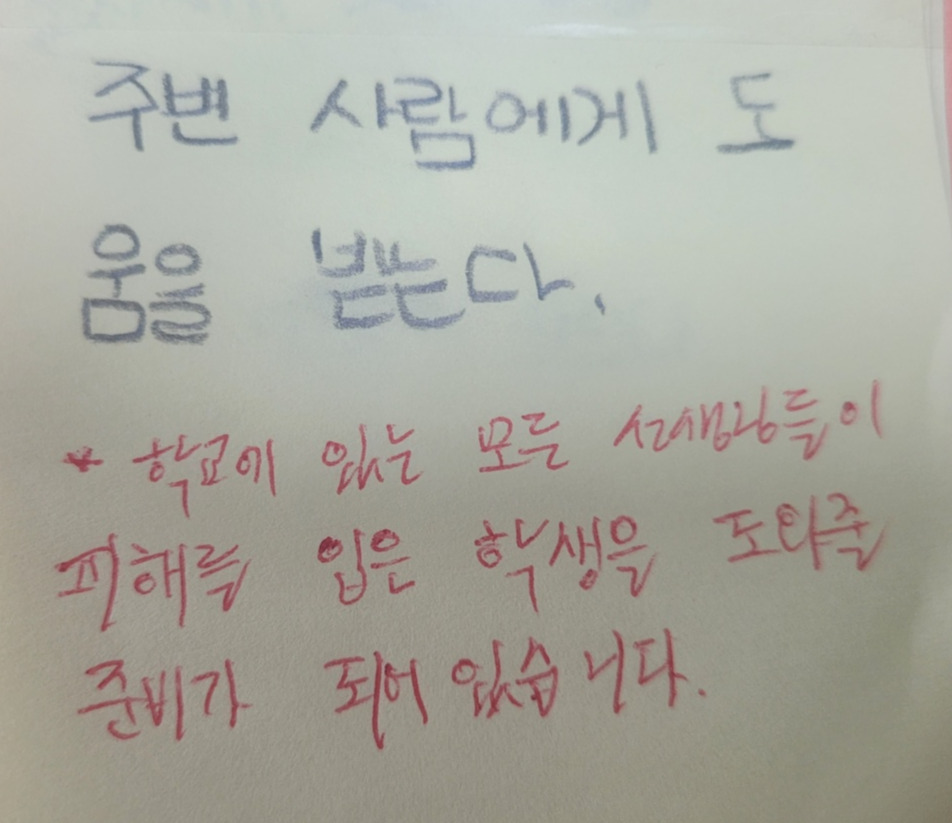 주변 사람에게 도
움을 받는다.
* 학교에 있는 모든 선생님들이
피해를 입은 학생을 도와줄
준비가 되어 있습니다.